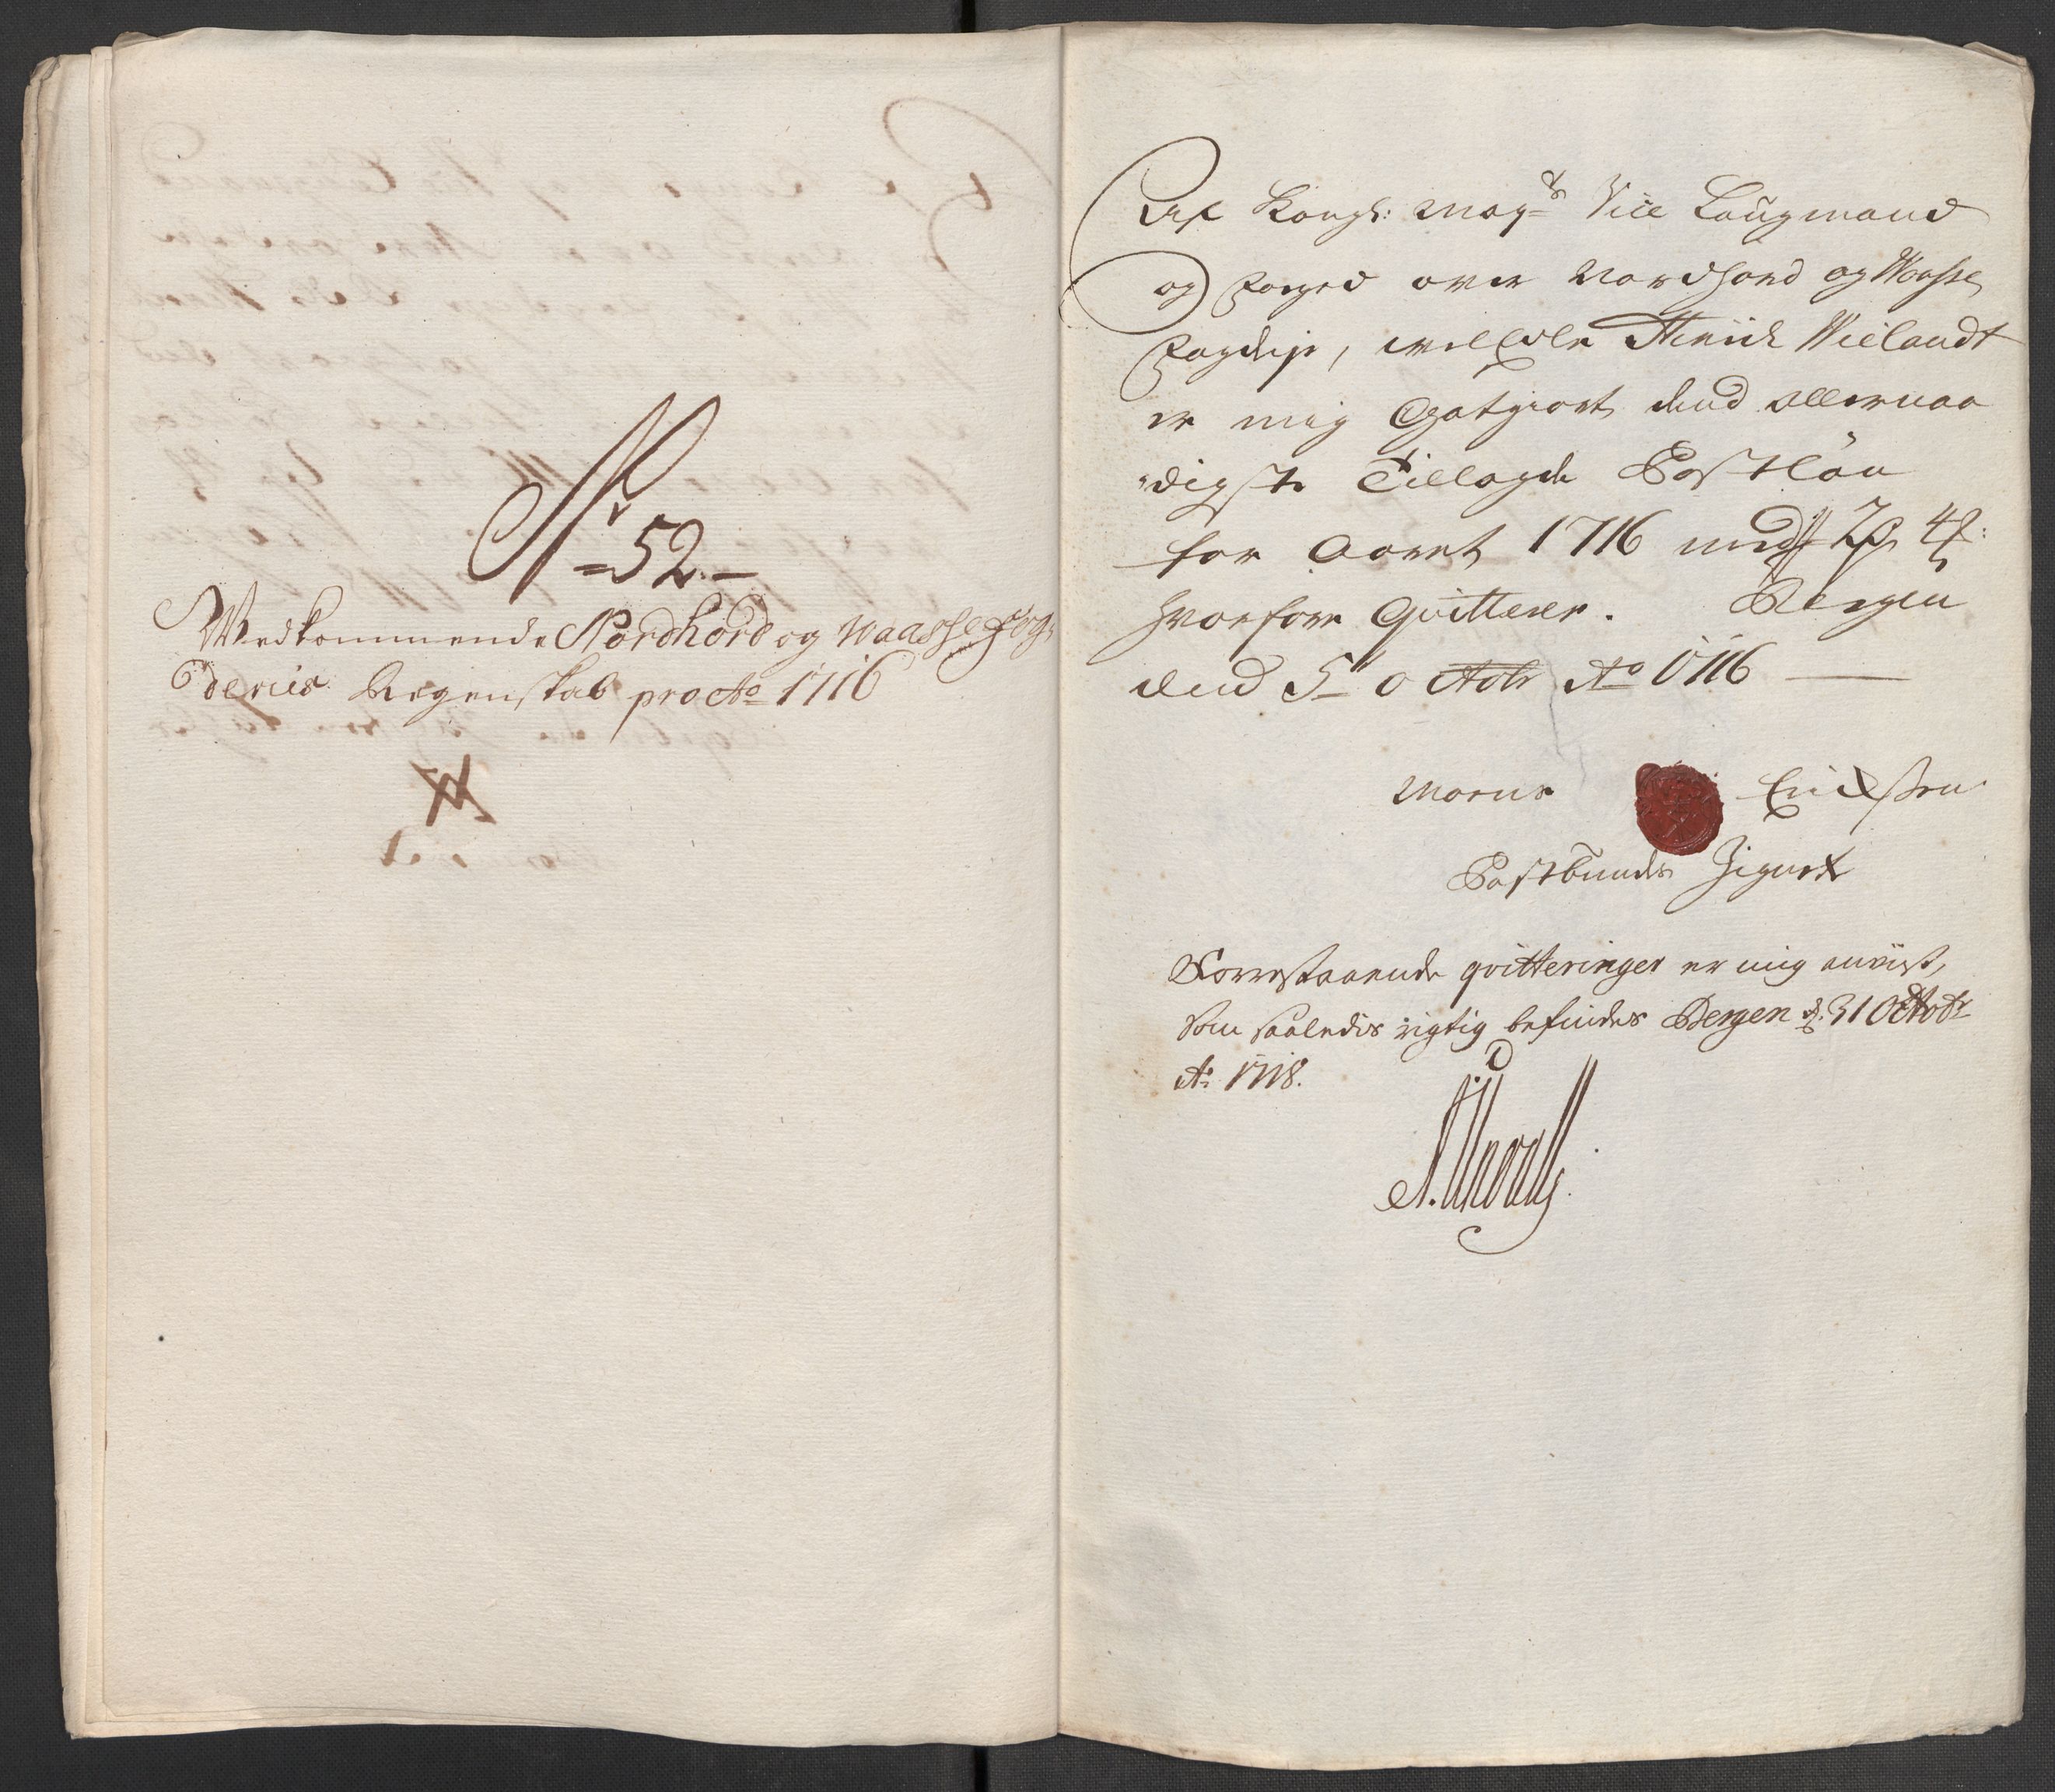 No 52.
Wedkommende Nordhord og Waasse Fog,
deries Regenskab pro Ao 1716
Af Kongl: Mayts Vice Laugmand
og Foeged over Nordhord og Wosse
Fogderje, welEdle Henrich Wielandt
er mig Gotgiort dend allernaa
digste Tillagde Postløn
for Aaret 1716 med
hvorfore Qvitterer. Bergen
dend 5 Octobr Ao 1716
Monns Erichsen
Postbunde Zignet
Forrestaaende qvitteringer er mig anviist,
som saaledis rigtig befindes Bergen d. 31 Octobr
Ao 1718.